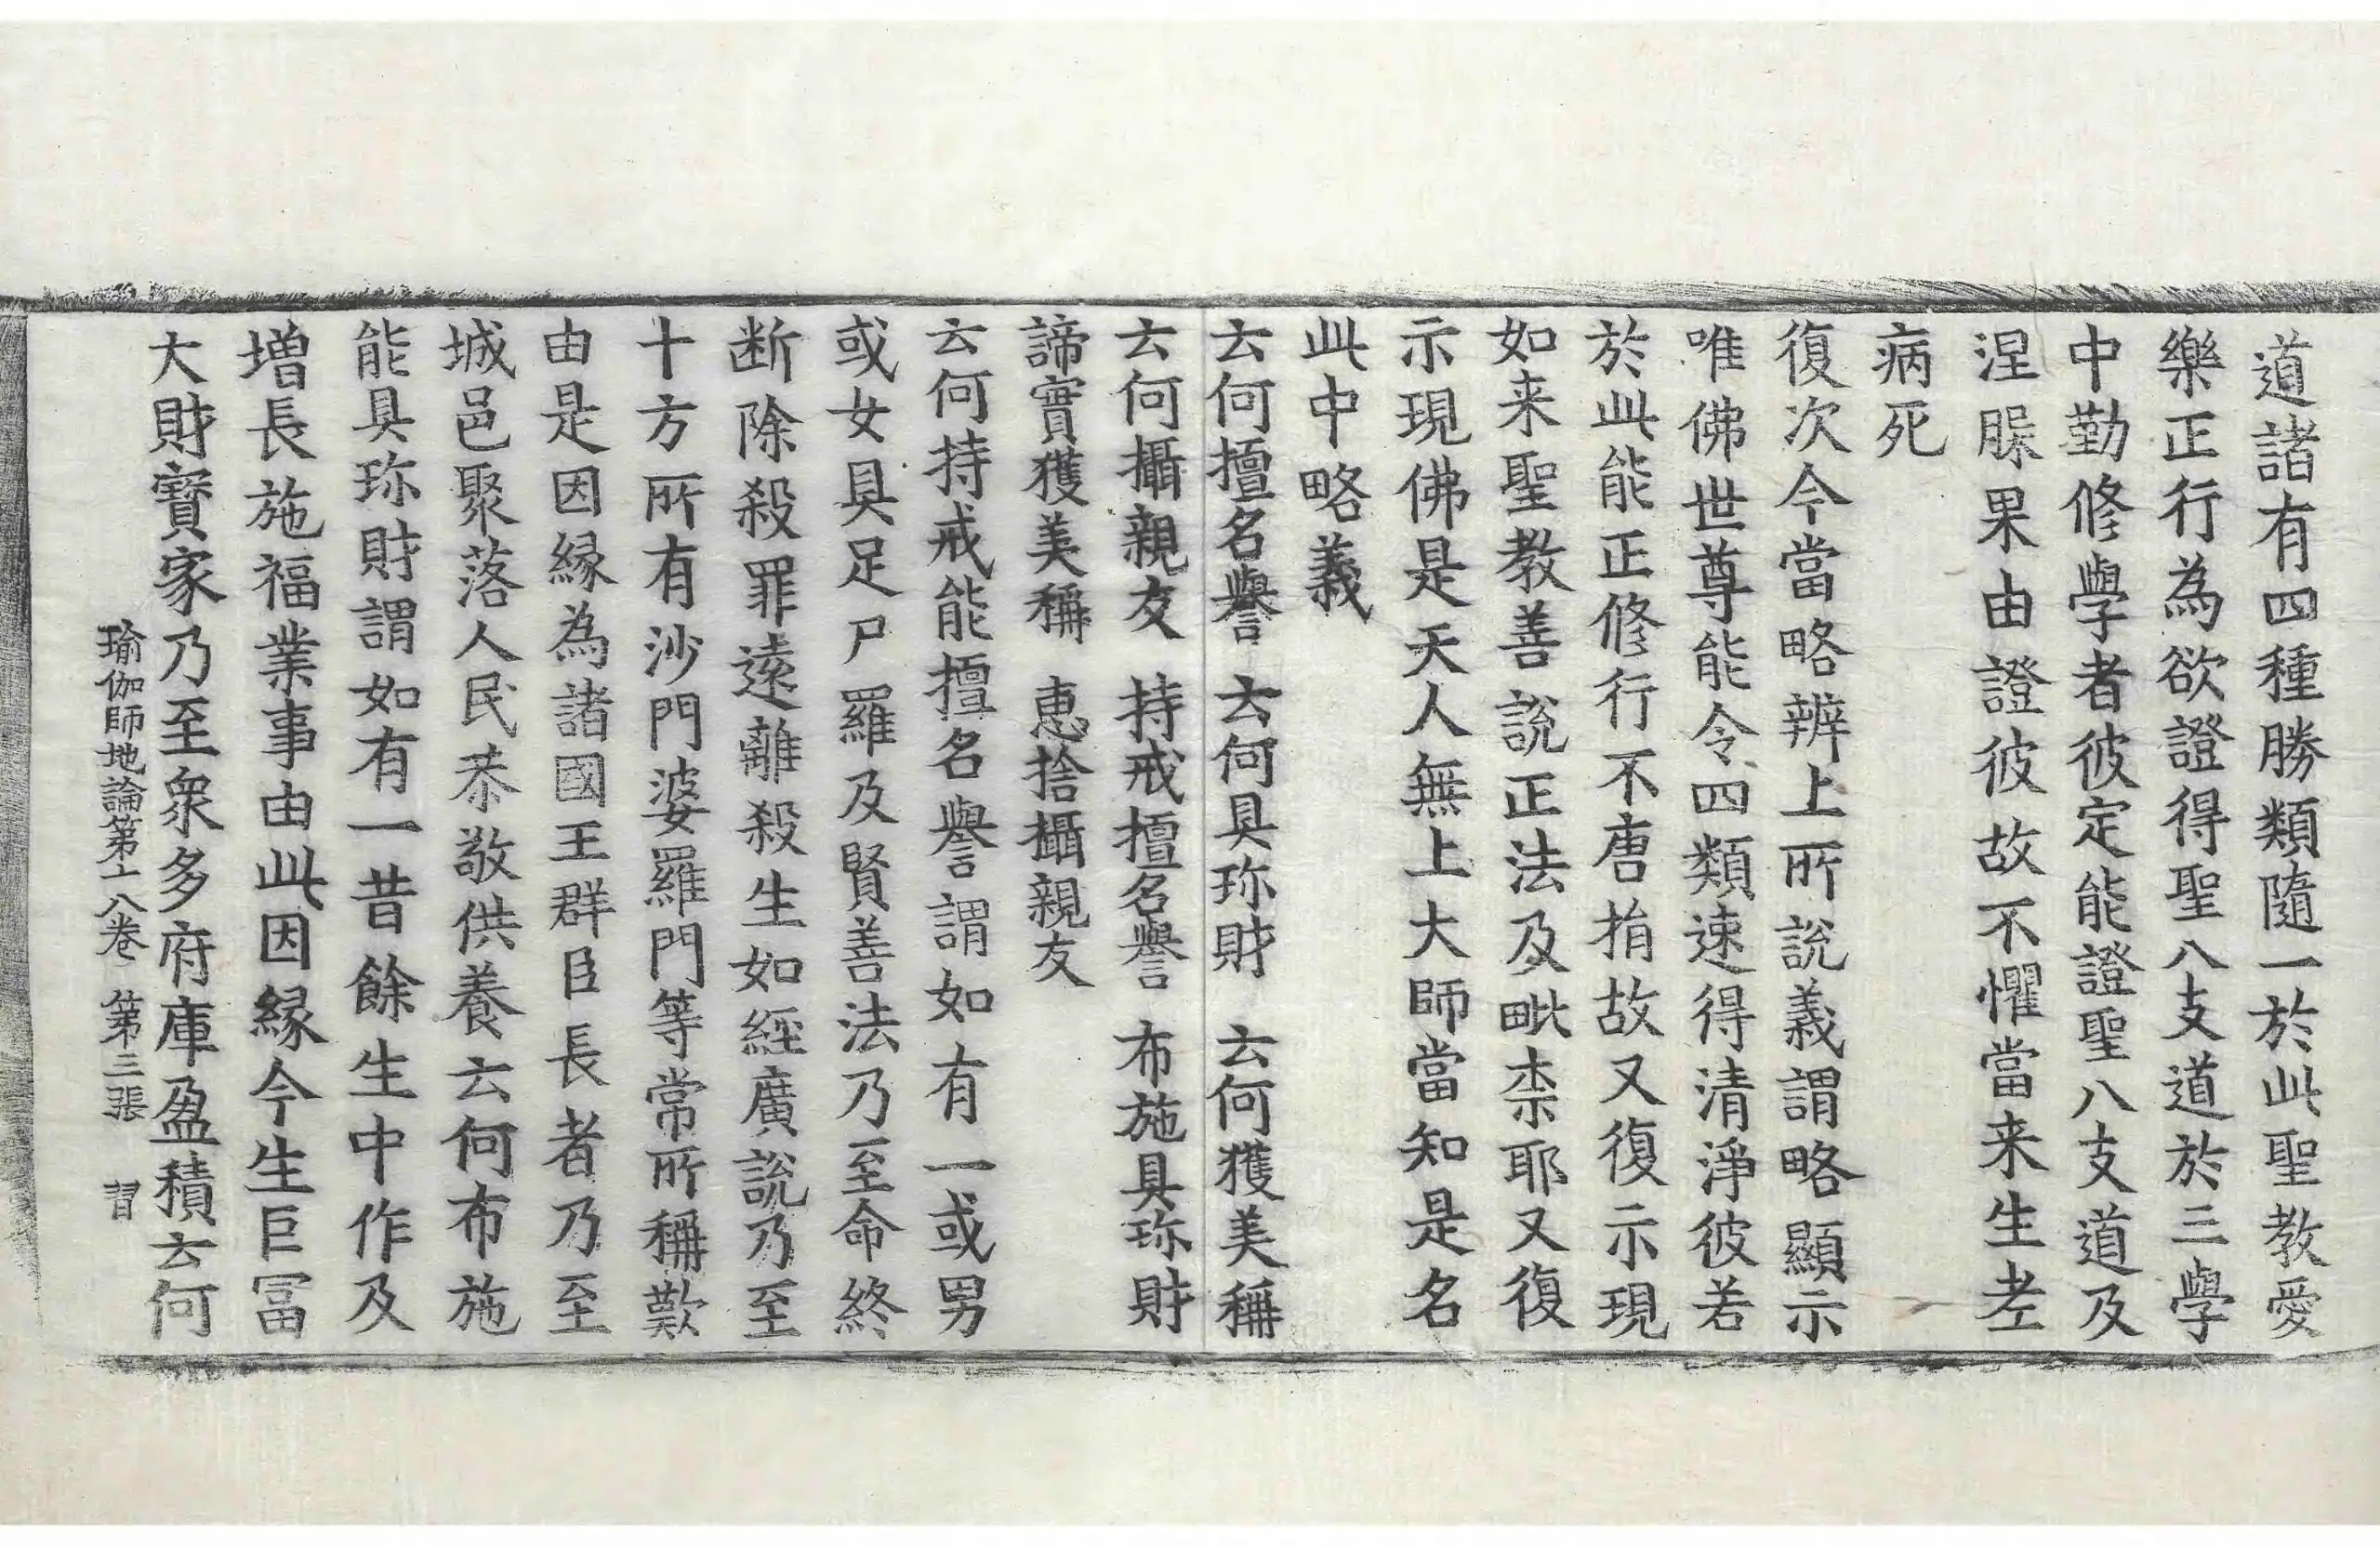 道諸有四種勝類隨一於此聖教愛
樂正行為欲證得聖八支道於三學
中勤修學者彼定能證聖八支道及
涅槃果由證彼故不懼當来生老
病死
復次今當略辨上所說義謂略顯示
唯佛世尊能令四類速得清淨彼若
於此能正修行不唐捐故又復示現
如来聖教善說正法及毗柰耶又復
示現佛是天人無上大師當知是名
此中略義
云何擅名譽　云何具珎財　云何獲美稱
云何攝親友　持戒擅名譽　布施具珎財
諦實獲美稱　恵捨攝親友
云何持戒能擅名譽謂如有一或男
或女具足尸羅及賢善法乃至命終
断除殺罪遠離殺生如經廣說乃至
十方所有沙門婆羅門等常所稱歎
由是因縁為諸國王群臣長者乃至
城邑聚落人民恭敬供養云何布施
能具珎財謂如有一昔餘生中作及
增長施福業事由此因縁今生巨冨
大財寳家乃至衆多府庫盈積云何
瑜伽師地論第十八卷　第三張　習